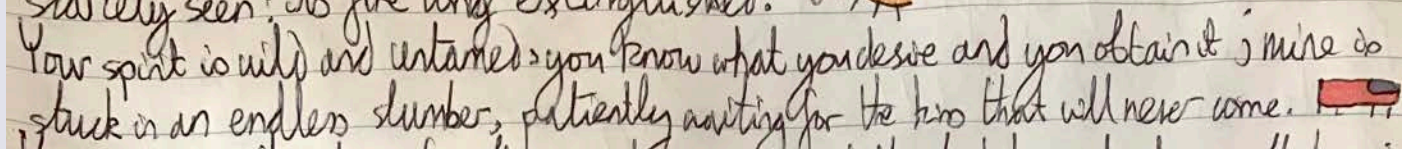 scarcely seen. Its fire long extinguished.
Your spirit is wild and untamed, you know what you desire and you obtain it; mine is
stuck in an endless slumber, patiently awaiting for the kiss that will never come.